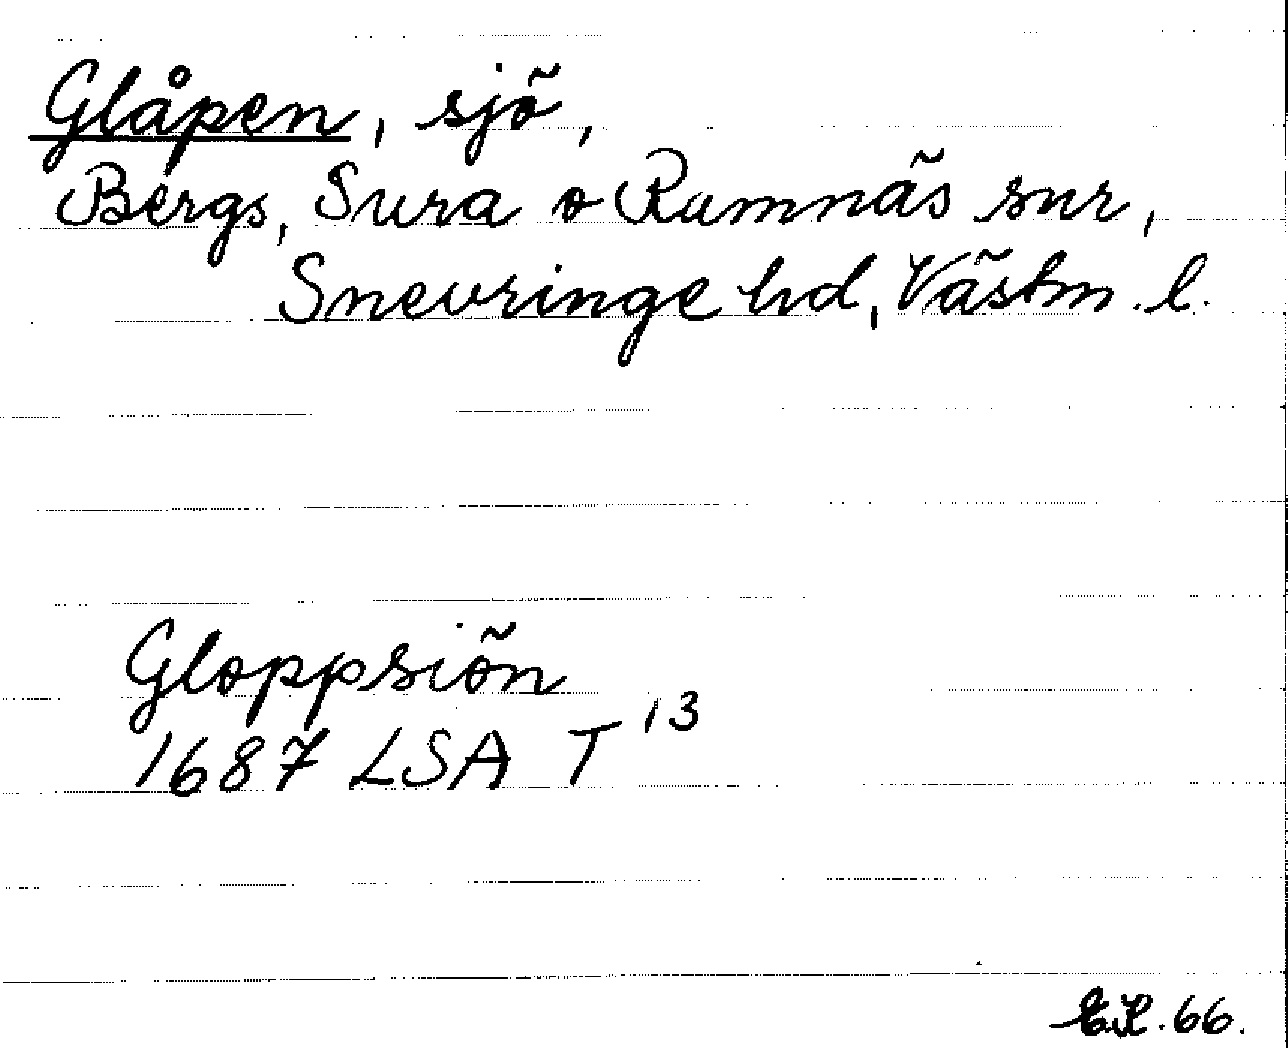 Glåpen, sjö,
Bergs, Sura o Ramnäs snr,
Snevringe hd, Västm. l.
Gloppsiön
1687 LSA T 13
66.